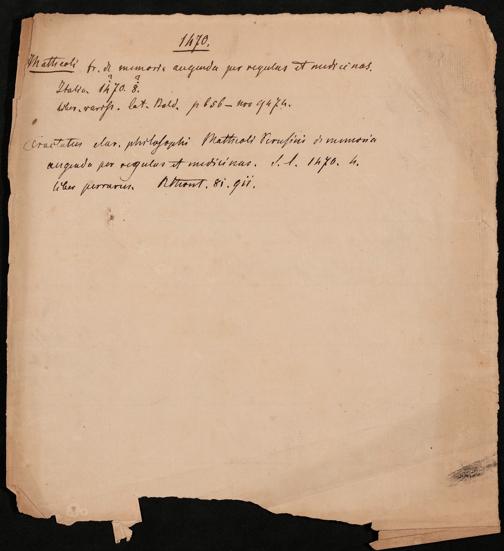 1470.
Mattheoli tr. de memoria augenda per regulas et medicinas.
Italia. 1470. 8.
? ?
liber. rariss. lat. p 656 — nro 9474.
Tractatus clar. philosophi Mattheoli Perusini de memoria
augenda per regulas et medicinas. S. l. 1470. 4.
liber perrarus. 81. 911.